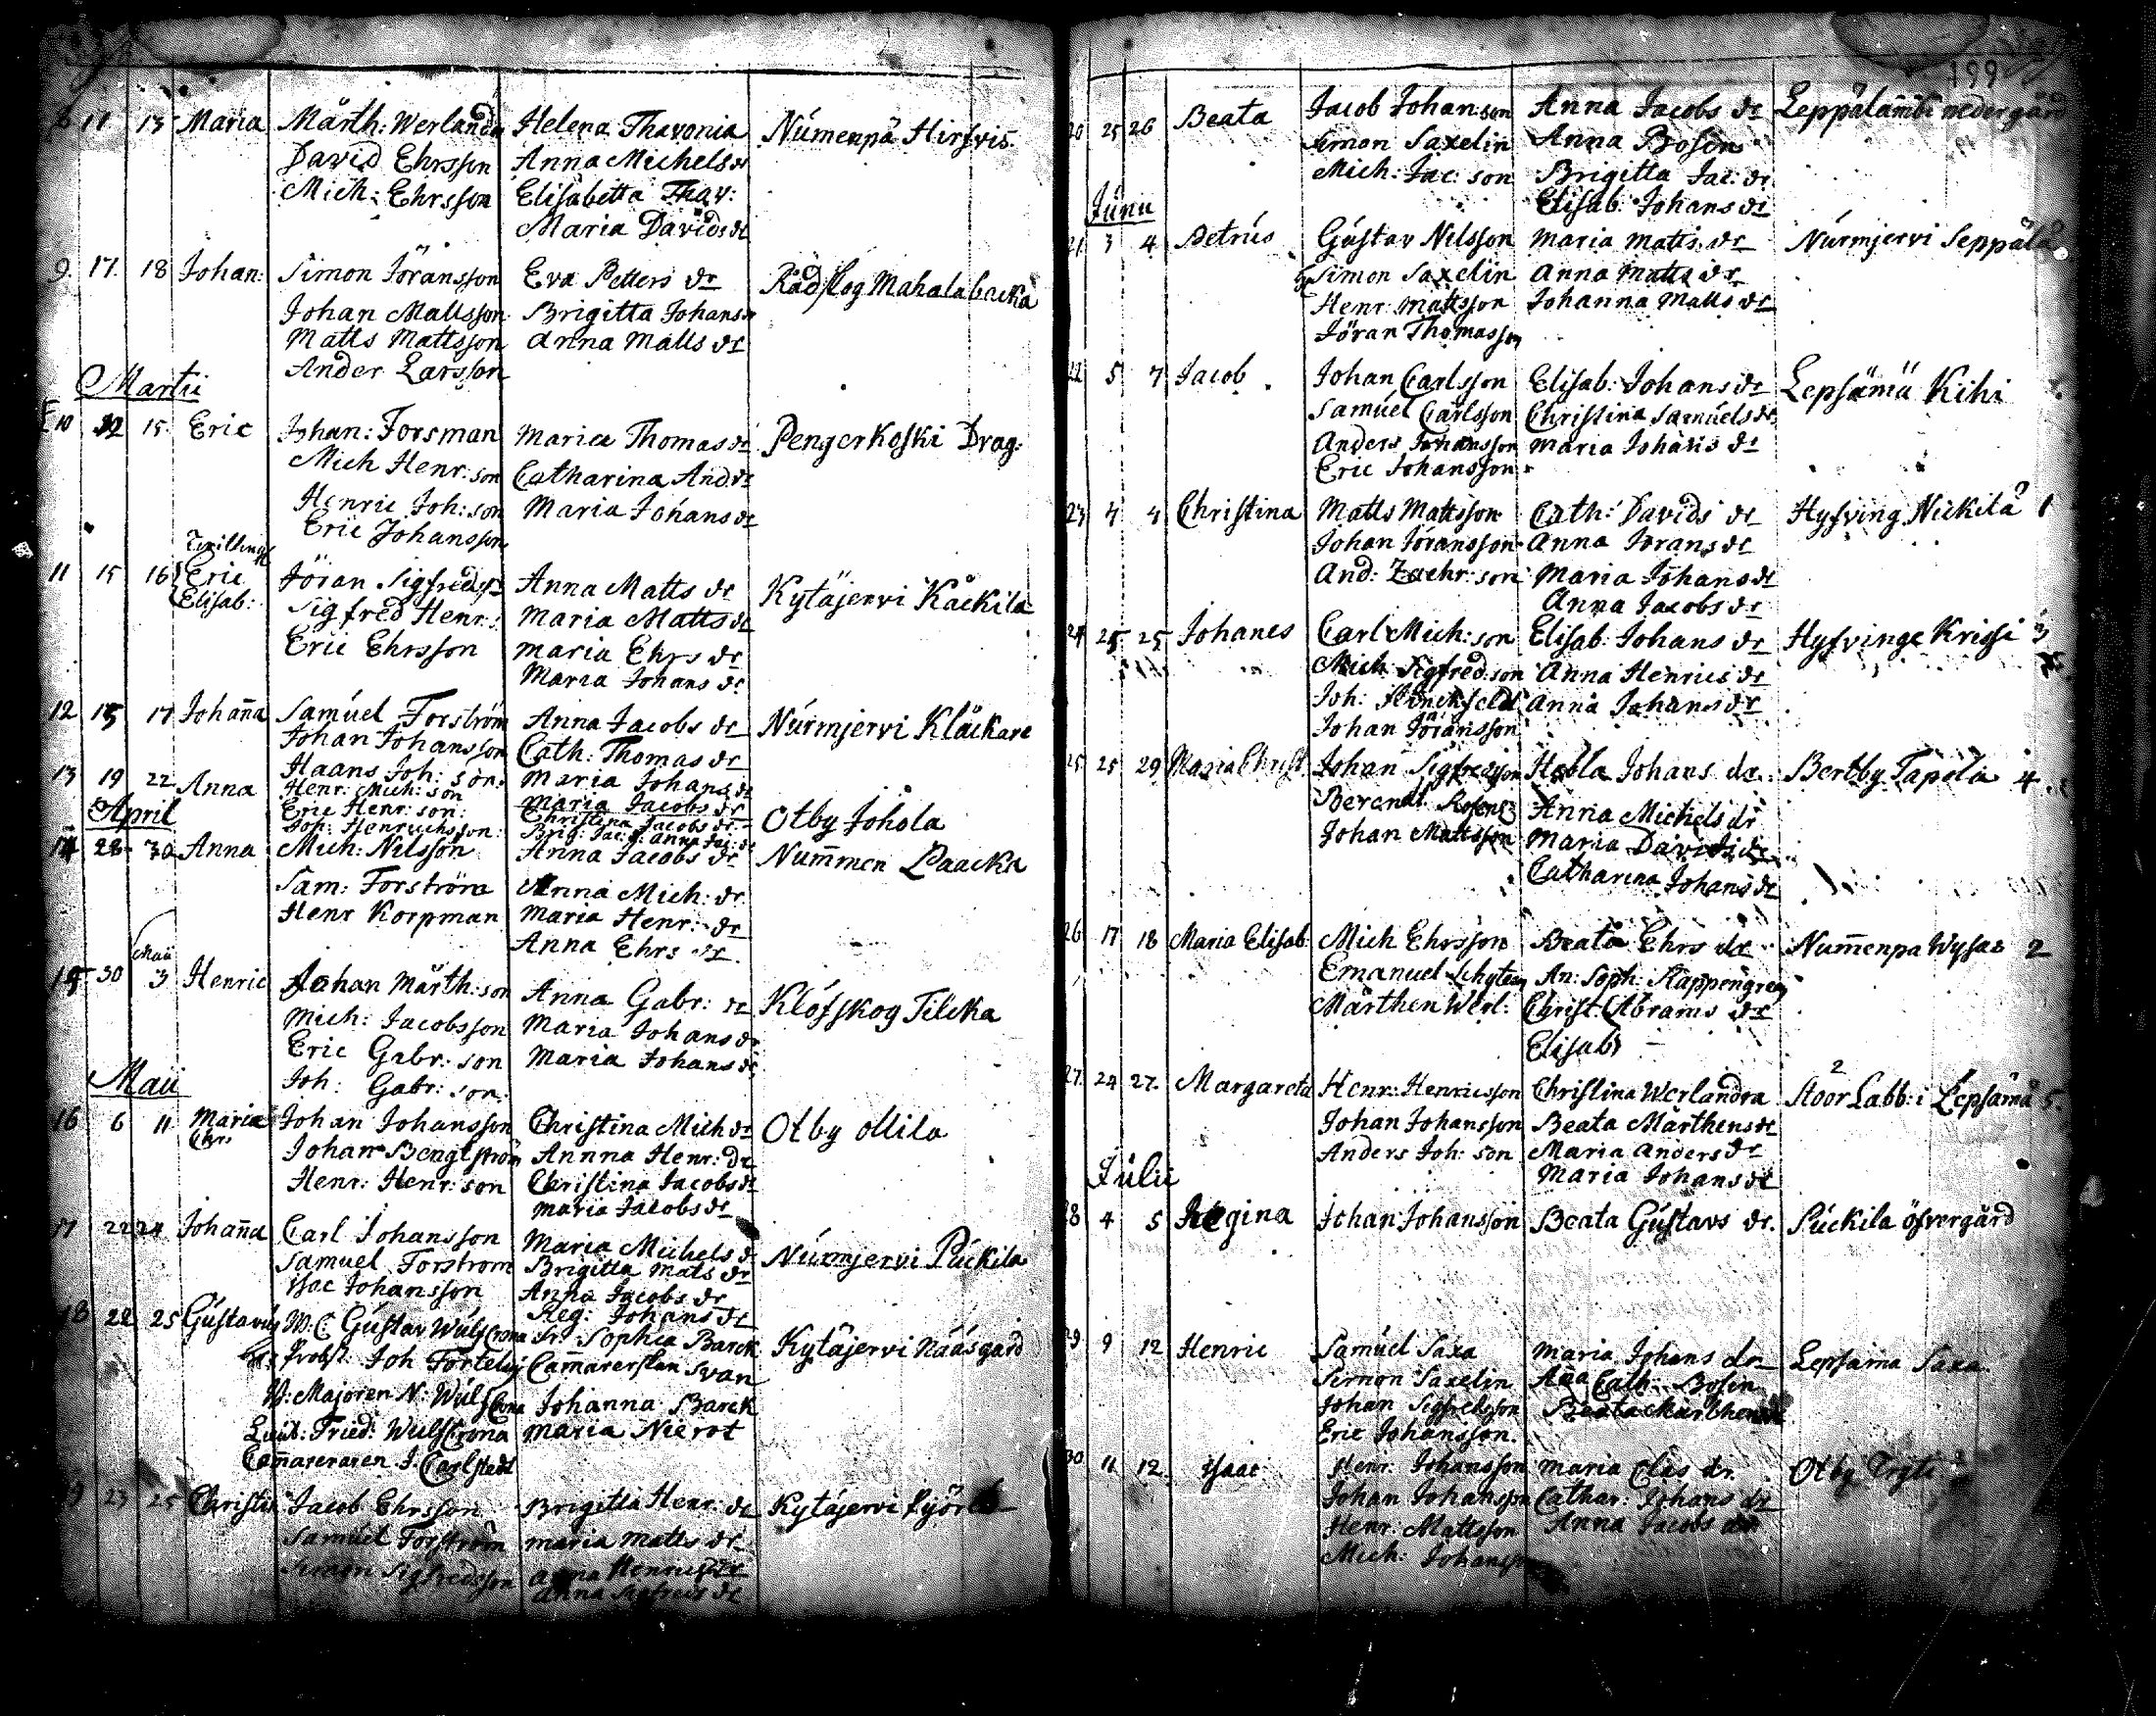 11 13 Maria Märth: Werlanda Helena Thavonia Númenpä Hirfvis.
David Ehrsson Anna Michels dr
Mich: Ehrsson Elisabetta Thav:
Maria Davids dr
9. 17. 18 Johan: Simon Jöransson Eva Petters dr Rådskog Mahalabacka
Johan Mattsson Brigitta Johans dr
Matts Mattsson Anna Matts dr
Ander Larsson
Martii
10 12 15 Eric Johan: Forsman Maria Thomas dr Pengerkoski Drag:
Mich Henr: son Catharina And dr
Henric Joh: son Maria Johans dr
Eric Johansson
Twillingr
11 15 16 Eric Jöran Sigfreds Anna Matts dr Kytäjervi Kåckila
Elisab: Sigfred Henr: Maria Matts dr
Eric Ehrsson Maria Ehrs dr
Maria Johans dr
12 15 17 Johaña Samúel Forström Anna Jacobs dr Núrmjervi Klåckare
Johan Johansson Cath: Thomas dr
Haans Joh: son: Maria Johans dr
13 19 22 Anna Henr: Mich: son Maria Jacobs dr Otby Johola
Eric Henr: son: Christina Jacobs dr
Joh: Henrichsson: Brig: Jac: dr Anna Jac: dr
April
14 28 30 Anna Mich: Nilsson Anna Jacobs dr Num̄en Paacka
Sam: Forström Anna Mich: dr
Henr Korpman Maria Henr: dr
Anna Ehrs dr
Maii
15 30 3 Henric Johan Märth: son Anna Gabr: dr Klöfskog Tilcka
Mich: Jacobsson Maria Johans dr
Eric Gabr: son Maria Johans dr
Joh: Gabr: son:
Maii
16 6 11 Maria Johan Johansson Christina Mich dr Otby Ollila
Chr: Johan Bengtström Annna Henr: dr
Henr: Henr: son Christina Jacobs dr
Maria Jacobs dr
17 22 24 Johaña Carl Johansson Maria Michels dr Núrmjervi Púckila
Samuel Forstrom Brigitta Mats dr
Isac Johansson Anna Jacobs dr
Reg: Johans dr
18 22 25 Gústavus W: C Gústav Wulfcrona Fr: Sophia Barck Kytäjervi Nääsgard
Probst: Joh Fortelius Cam̄arerskan Svan
H: Majoren N: Wulfcrona Johanna Barck
Lieut: Fried: Wulfcrona Maria Nierot
Cam̄areraren J. Carlstedt
19 23 25 Christi Jacob Ehrsson Brigitta Henr: dr Kytäjervi
Samúel Forström Maria Matts dr
Simon Sigfredsson Anna Henrics dr
Anna Sigfreds dr
199
20 25 26 Beata Jacob Johanson Anna Jacobs dr Leppälambi nedergård
Simon Saxelin Anna Bosin
Mich: Jac: son Brigitta Jac: dr
Elisab: Johans dr
Junii
21 3 4 Petrús Gústav Nilsson Maria Matts dr Núrmjervi Seppälä
Simon Saxelin Anna Matts dr
Henr: Mattsson Johanna Matts dr
Jöran Thomasson
22 5 7 Jacob Johan Carlsson Elisab: Johans dr Lepsämä Kihi
Samúel Carlsson Christina Samúels dr
Anders Johansson Maria Johans dr
Eric Johansson
23 4 4 Christina Matts Mattsson Cath: Davids dr Hyfving Nickilä 1
Johan Jöransson Anna Jörans dr
And: Zachr: son Maria Johans dr
Anna Jacobs dr
24 25 25 Johanes Carl Mich: son Elisab: Johans dr Hyfvinge Krissi 3
Mich Sigfred: son Anna Henrics dr
Joh: Anna Johans dr
Johan Jöransson
25 25 29 Maria Christ: Johan Sigfredsson Hebla Johans dr. Bertby Tapola 4
Berendt Rosens Anna Michels dr
Johan Mattsson Maria Davids dr
Catharina Johans dr
26 17 18 Maria Elisab: Mich Ehrsson Beata Ehrs dr Num̄enpa Wysas 2
Emanuel An: Soph: Kappengren
Märthen Werl: Christ: Abrams dr
Elisab
27. 24 27. Margareta Henr: Henricsson Christina Werlandra Stoor Labb: i Lepsämä 5.
2
Johan Johansson Beata Märthens dr
Anders Joh: son Maria Anders dr
Maria Johans dr
Julii
28 4 5 Regina Johan Johansson Beata Gústavs dr. Púckila öfvergård
29 9 12 Henric Samúel Saxa Maria Johans dr Lepsama Saxa
Simon Saxelin Aña Cath: Bosin
Johan Sigfredsson Beata Marthens dr
Eric Johansson.
30 11 12. Isaac Henr: Johansson Maria Clas dr. Otby
Johan Johansson Cathar: Johans dr
Henr: Mattsson Anna Jacobs dr
Mich: Johansson